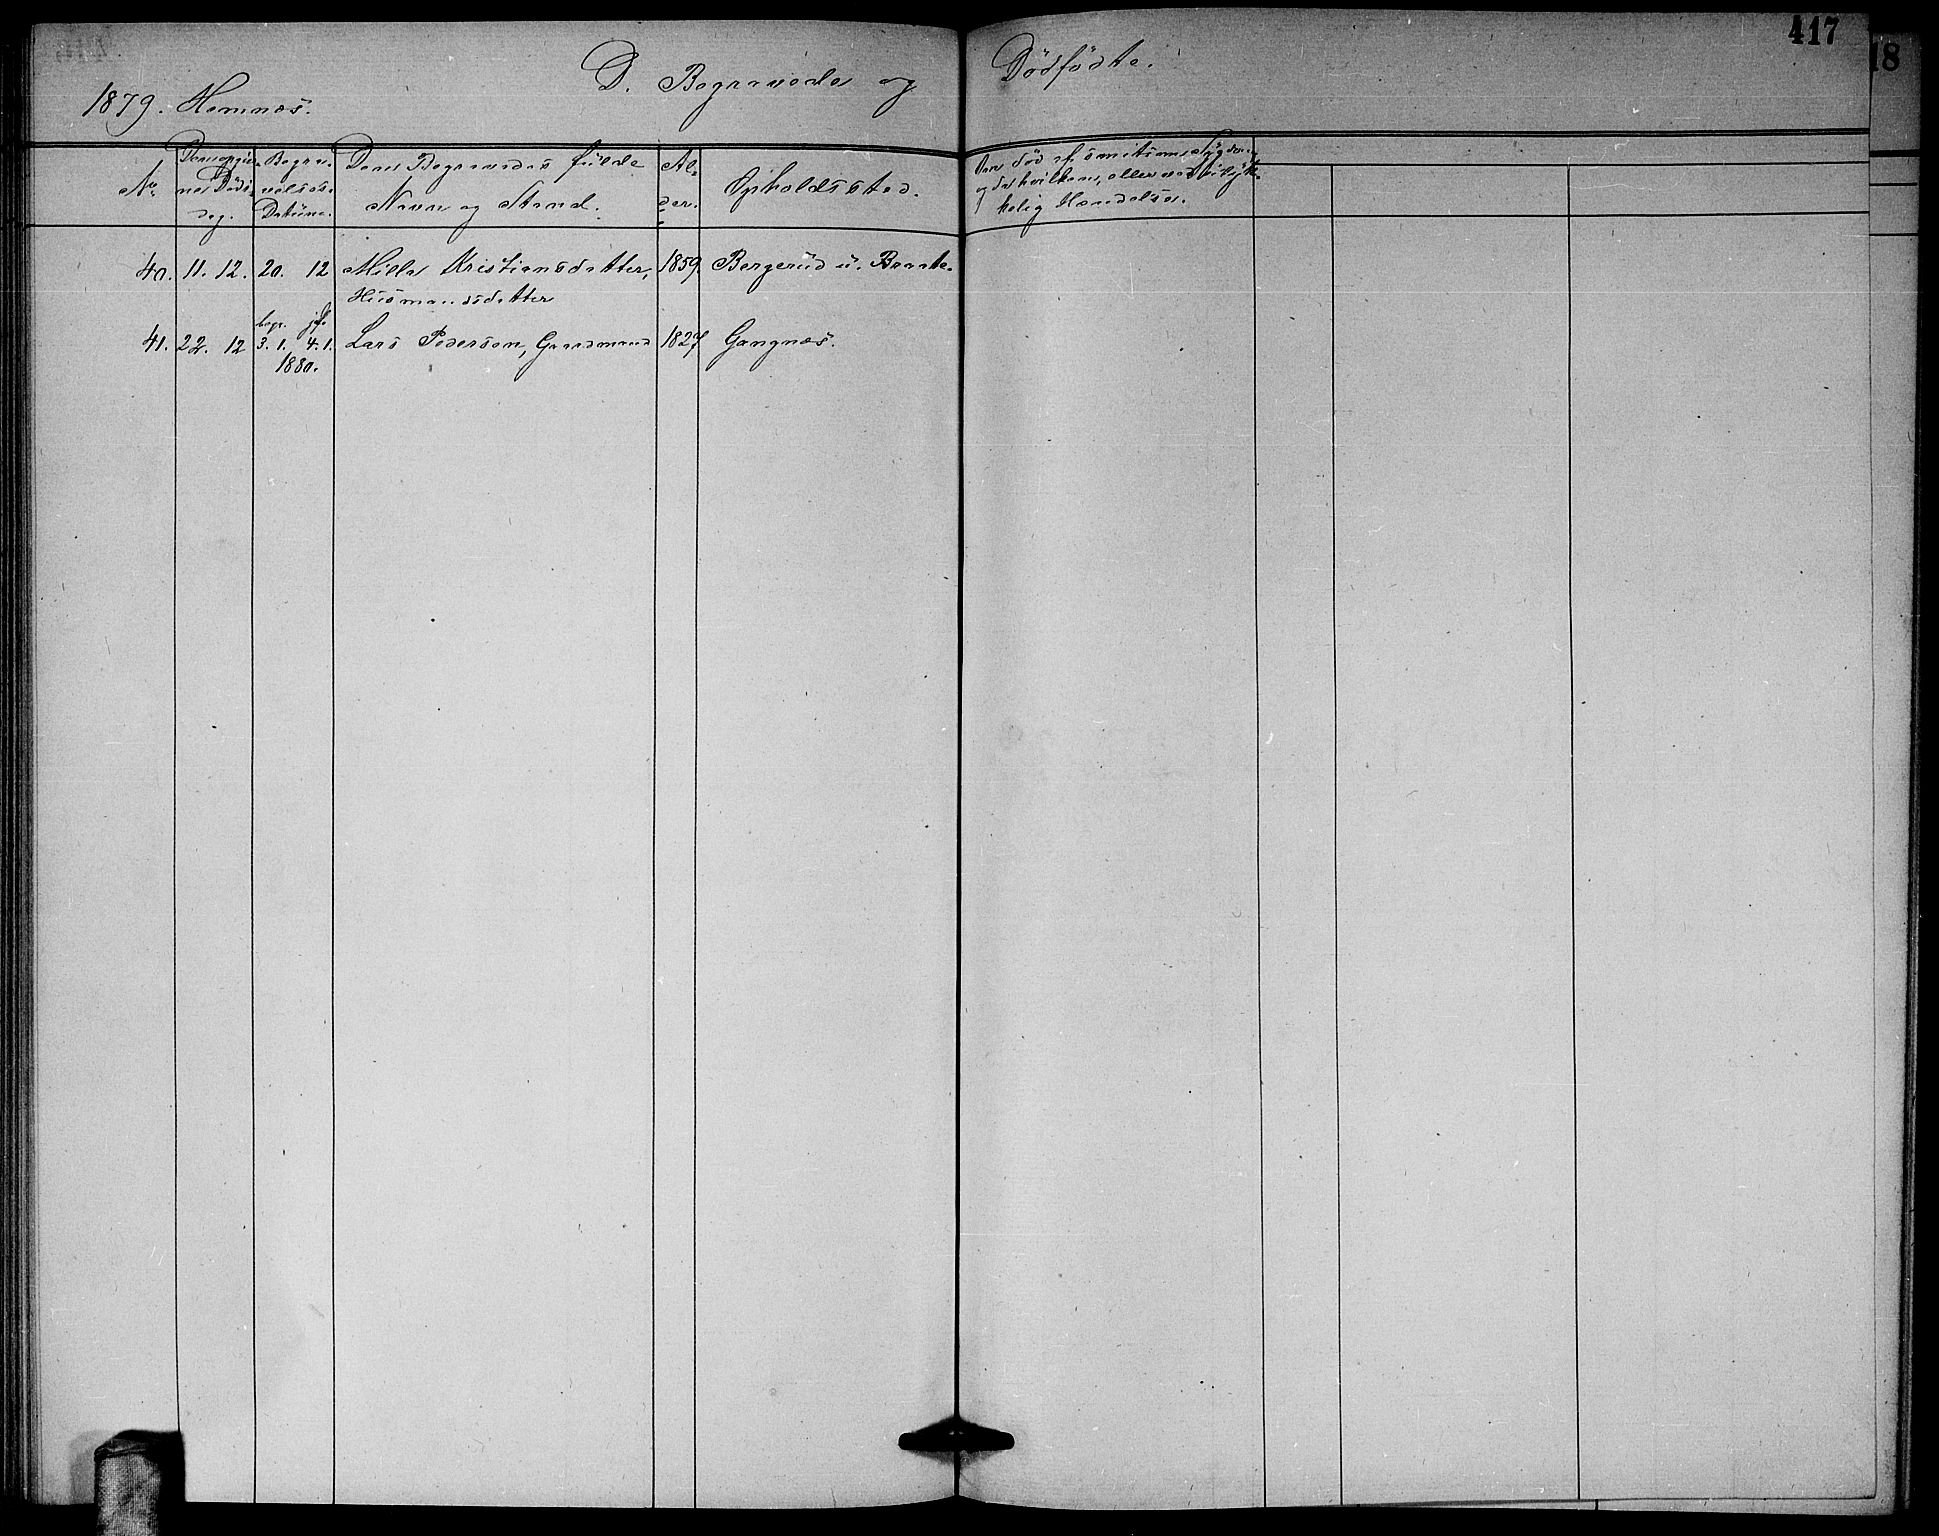 417
18
D. Begravede og Dødfødte.
1879. Hemnæs.
No.
Dødsdag.
Begravelses-Datum.
Den Begravedes fulde
Navn og Stand.
Alder.
Opholdssted.
Om død af smitsom Sygdom
og da hvilken, eller ved ulyk-
kelig Hændelse.
40. 11. 12. 20. 12 Mille Kristiansdatter, 1859 Bergerud u. Braate.
Husmandsdatter
begr. jfk
41. 22. 12 3. 1. 4. 1. Lars Pedersen, Gaardmand 1827 Gangnæs.
1880.